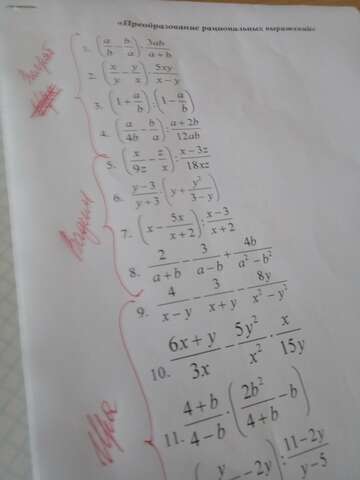 «Преобразование рациональных выражений»
1. (a/b − b/a) · 3ab/(a+b)
2. (x/y − y/x) · 5xy/(x−y)
3. (1 + a/b) : (1 − a/b)
4. (a/4b − b/a) : (a+2b)/12ab
5. (x/9z − z/x) : (x−3z)/18xz
6. (y−3)/(y+3) · (y + y²/(3−y))
7. (x − 5x/(x+2)) : (x−3)/(x+2)
8. 2/(a+b) − 3/(a−b) + 4b/(a²−b²)
9. 4/(x−y) − 3/(x+y) − 8y/(x²−y²)
10. (6x+y)/3x − 5y²/x² · x/15y
11. (4+b)/(4−b) · (2b²/(4+b) − b)
(y − 2y) : (11−2y)/(y−5)